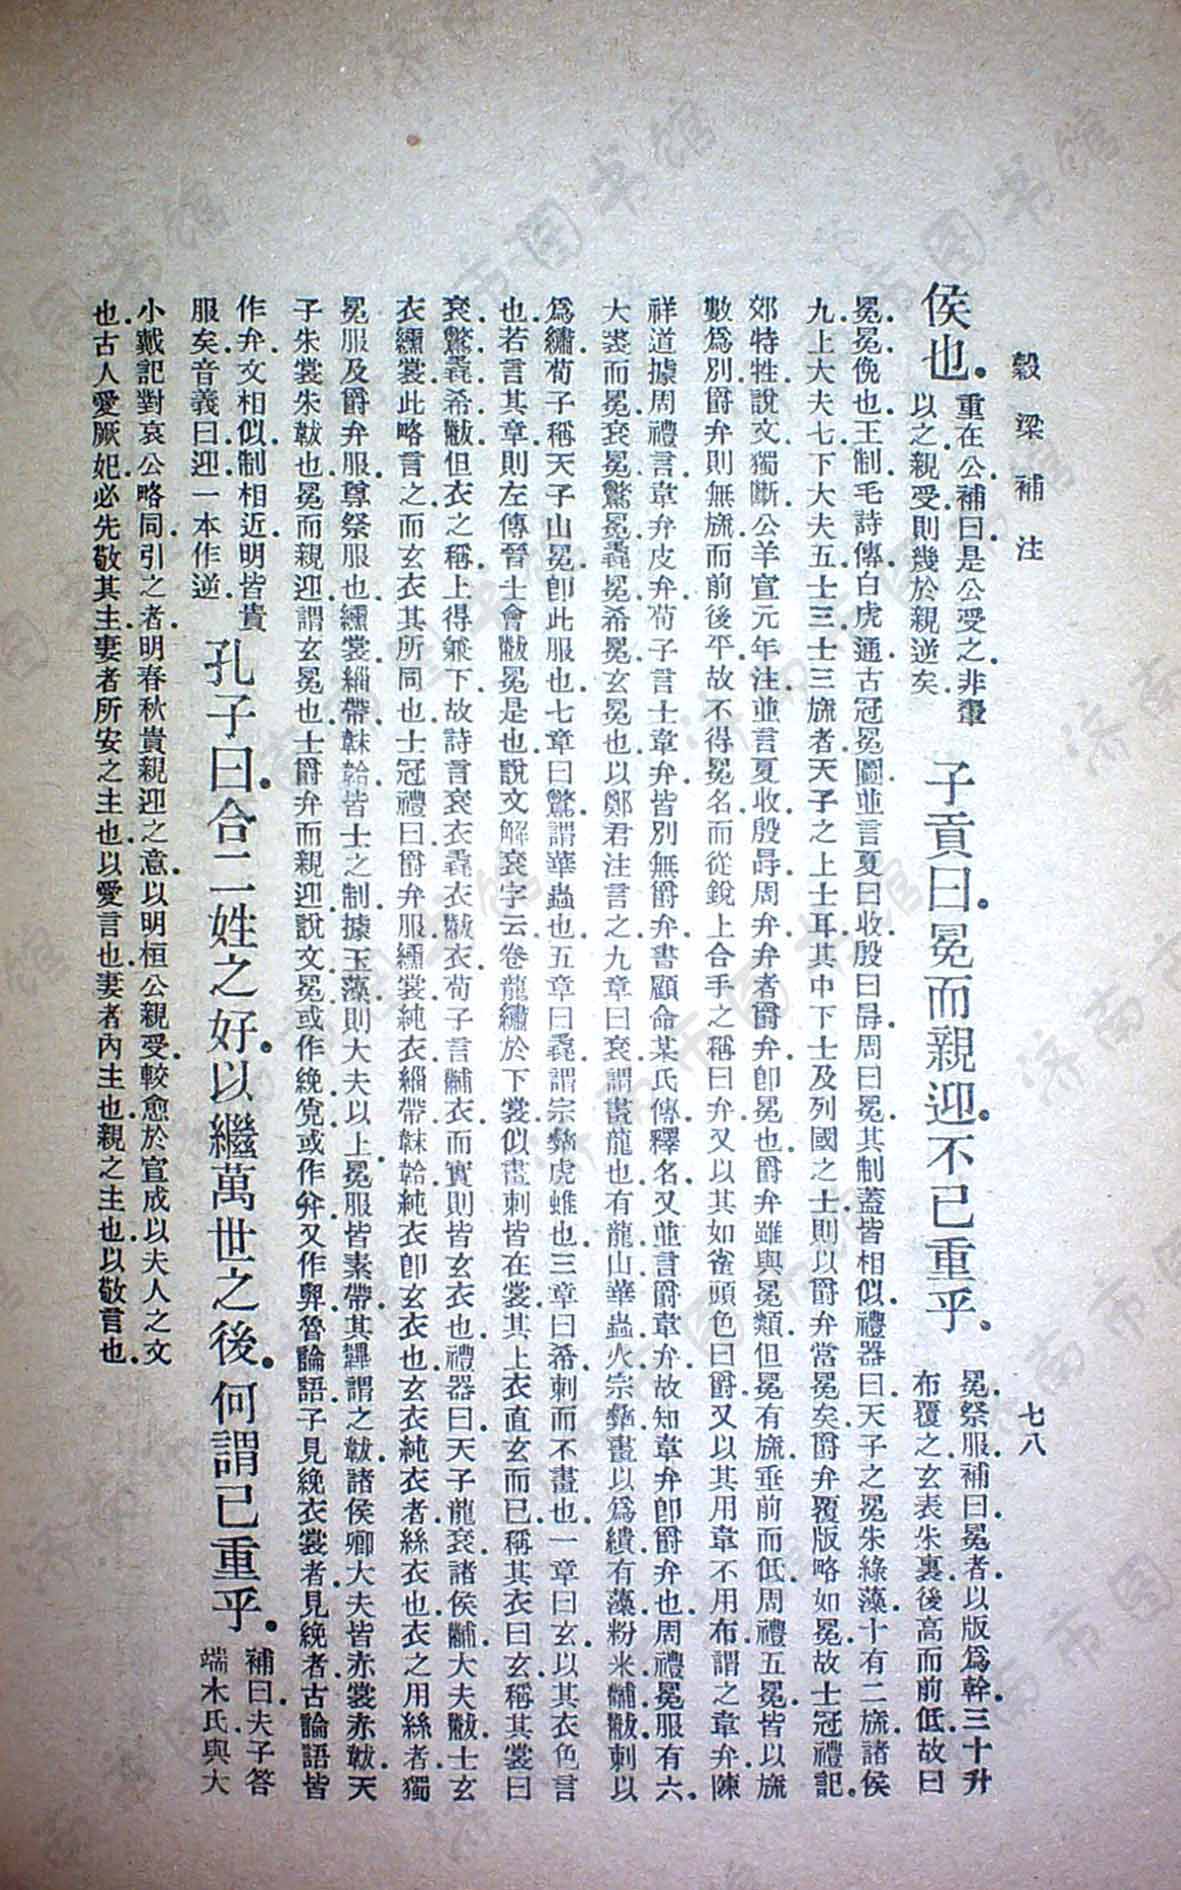 穀梁補注
七八
侯也。重在公。補曰。是公受之。非翬
以之。親受。則幾於親逆矣。
子貢曰。冕而親迎。不已重乎。冕。祭服。補曰。冕者。以版爲幹。三十升
布覆之。玄表朱裏。後高而前低。故曰
冕。冕。俛也。王制。毛詩傳。白虎通。古冠冕圖。並言夏曰收。殷曰冔。周曰冕。其制蓋皆相似。禮器曰。天子之冕。朱綠藻。十有二旒。諸侯
九。上大夫七。下大夫五。士三。士三旒者。天子之上士耳。其中下士及列國之士。則以爵弁當冕矣。爵弁覆版略如冕。故士冠禮記。
郊特牲。說文。獨斷。公羊宣元年注。並言夏收殷冔周弁。弁者。爵弁。卽冕也。爵弁雖與冕類。但冕有旒垂前而低。周禮五冕。皆以旒
數爲別。爵弁則無旒而前後平。故不得冕名。而從銳上合手之稱曰弁。又以其如雀頭色曰爵。又以其用韋不用布。謂之韋弁。陳
祥道據周禮言韋弁皮弁。荀子言士韋弁。皆別無爵弁。書顧命某氏傳。釋名。又並言爵韋弁。故知韋弁卽爵弁也。周禮冕服有六。
大裘而冕。袞冕。鷩冕。毳冕。希冕。玄冕也。以鄭君注言之。九章曰袞。謂畫龍也。有龍山華蟲火宗彝。畫以爲繢。有藻粉米黼黻。刺以
爲繡。荀子稱天子山冕。卽此服也。七章曰鷩。謂華蟲也。五章曰毳。謂宗彝虎蜼也。三章曰希。刺而不畫也。一章曰玄。以其衣色言
也。若言其章。則左傳晉士會黻冕是也。說文解袞字云。卷龍繡於下裳。似畫刺皆在裳。其上衣直玄而已。稱其衣曰玄。稱其裳曰
袞鷩毳希黻。但衣之稱。上得兼下。故詩言袞衣毳衣黻衣。荀子言黼衣。而實則皆玄衣也。禮器曰。天子龍袞。諸侯黼。大夫黻。士玄
衣纁裳。此略言之。而玄衣其所同也。士冠禮曰。爵弁服。纁裳。純衣。緇帶。韎韐。純衣卽玄衣也。玄衣純衣者。絲衣也。衣之用絲者。獨
冕服及爵弁服。尊祭服也。纁裳緇帶韎韐。皆士之制。據玉藻。則大夫以上。冕服皆素帶。其韠謂之韍。諸侯卿大夫皆赤裳赤韍。天
子朱裳朱韍也。冕而親迎。謂玄冕也。士爵弁而親迎。說文。冕或作絻。覍或作弁。又作𢍁。魯論語。子見絻衣裳者。見絻者。古論語皆
作弁。文相似。制相近。明皆貴
服矣。音義曰。迎。一本作逆。
孔子曰。合二姓之好。以繼萬世之後。何謂已重乎。補曰。夫子答
端木氏。與大
小戴記對哀公略同。引之者。明春秋貴親迎之意。以明桓公親受。較愈於宣成以夫人之文
也。古人愛厥妃。必先敬其主。妻者。所安之主也。以愛言也。妻者。內主也。親之主也。以敬言也。